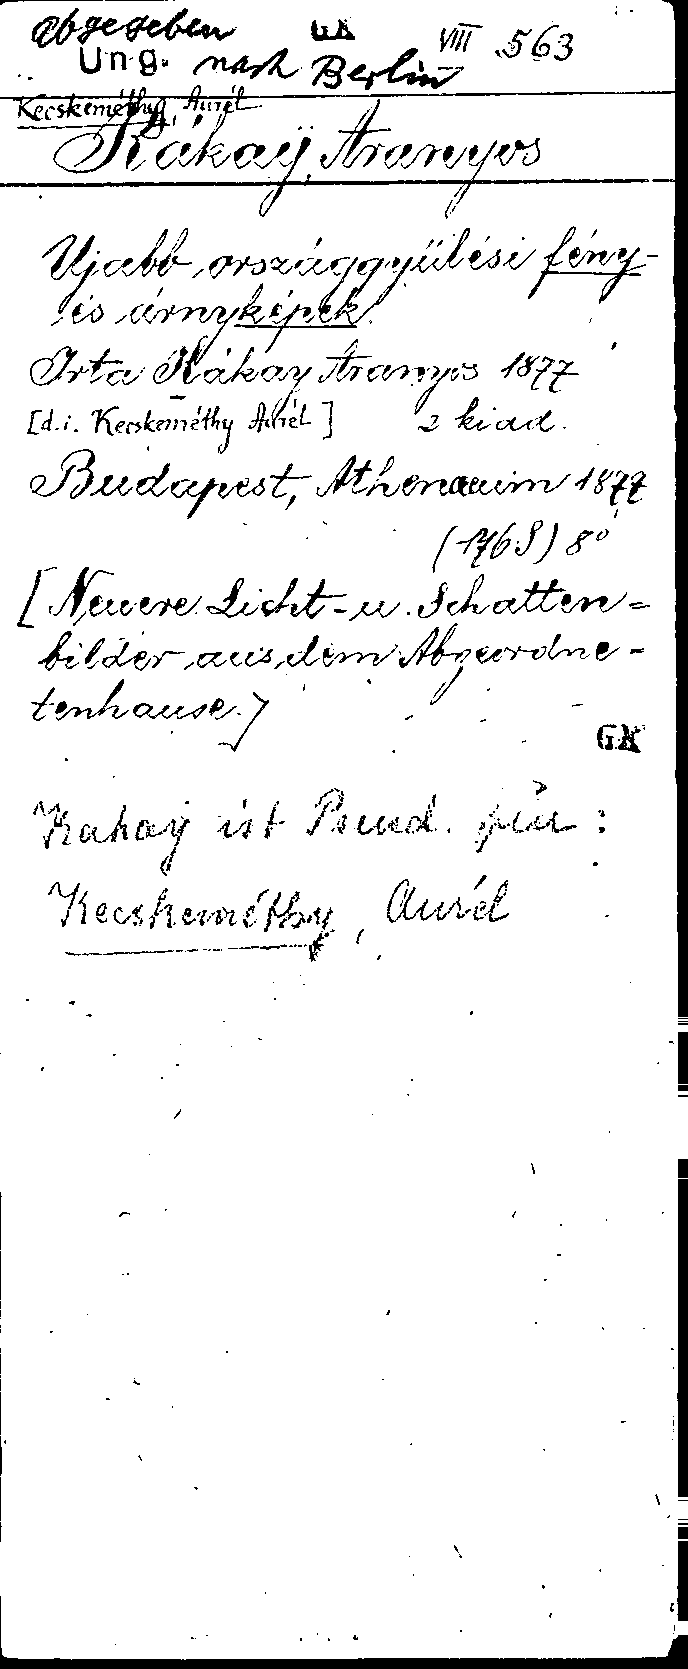 abgegeben GX VIII 563
Ung. nach Berlin
Kecskeméthy, Aurél
Kákay, Aranyos
Ujabb országgyülési fény-
és árnyképek.
Irta Kákay Aranyos 1877
[d.i. Kecskeméthy Aurél] 2 kiad.
Budapest, Athenaeum 1877
(176 S) 8°
[Neuere Licht- u. Schatten=
bilder aus dem Abgeordne-
tenhause.]
GX
Kakay ist Pseud. für:
Kecskeméthy, Aurél